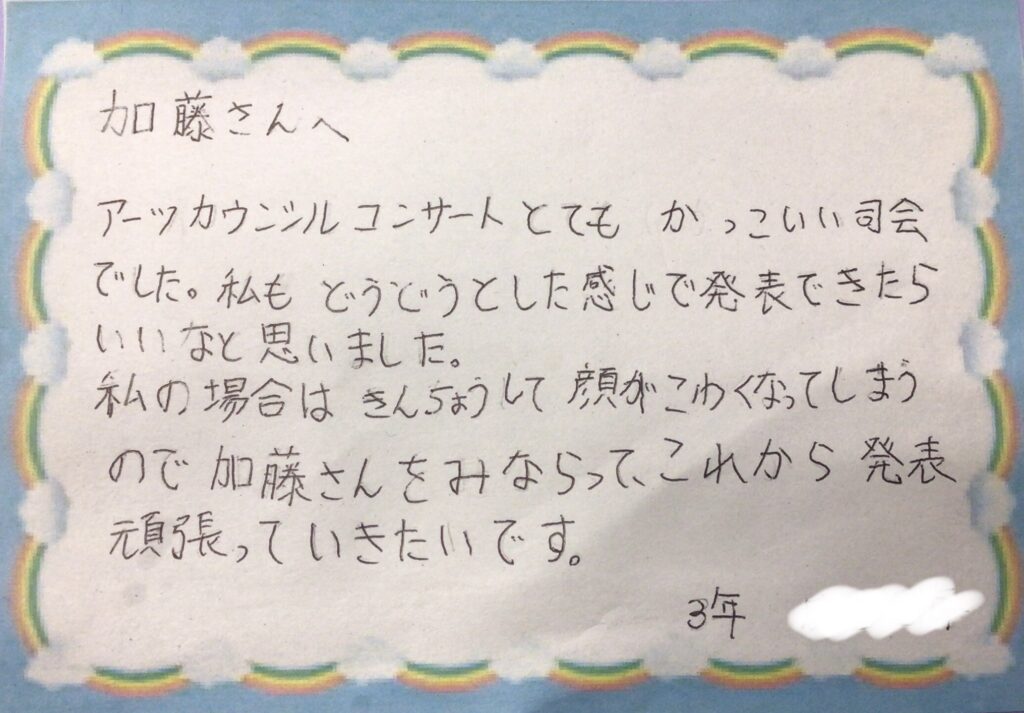 加藤さんへ
アーツカウンシルコンサートとても かっこいい司会
でした。私も どうどうとした感じで発表できたら
いいなと思いました。
私の場合は きんちょうして 顔がこわくなってしまう
ので 加藤さんをみならって、これから 発表
頑張っていきたいです。
3年